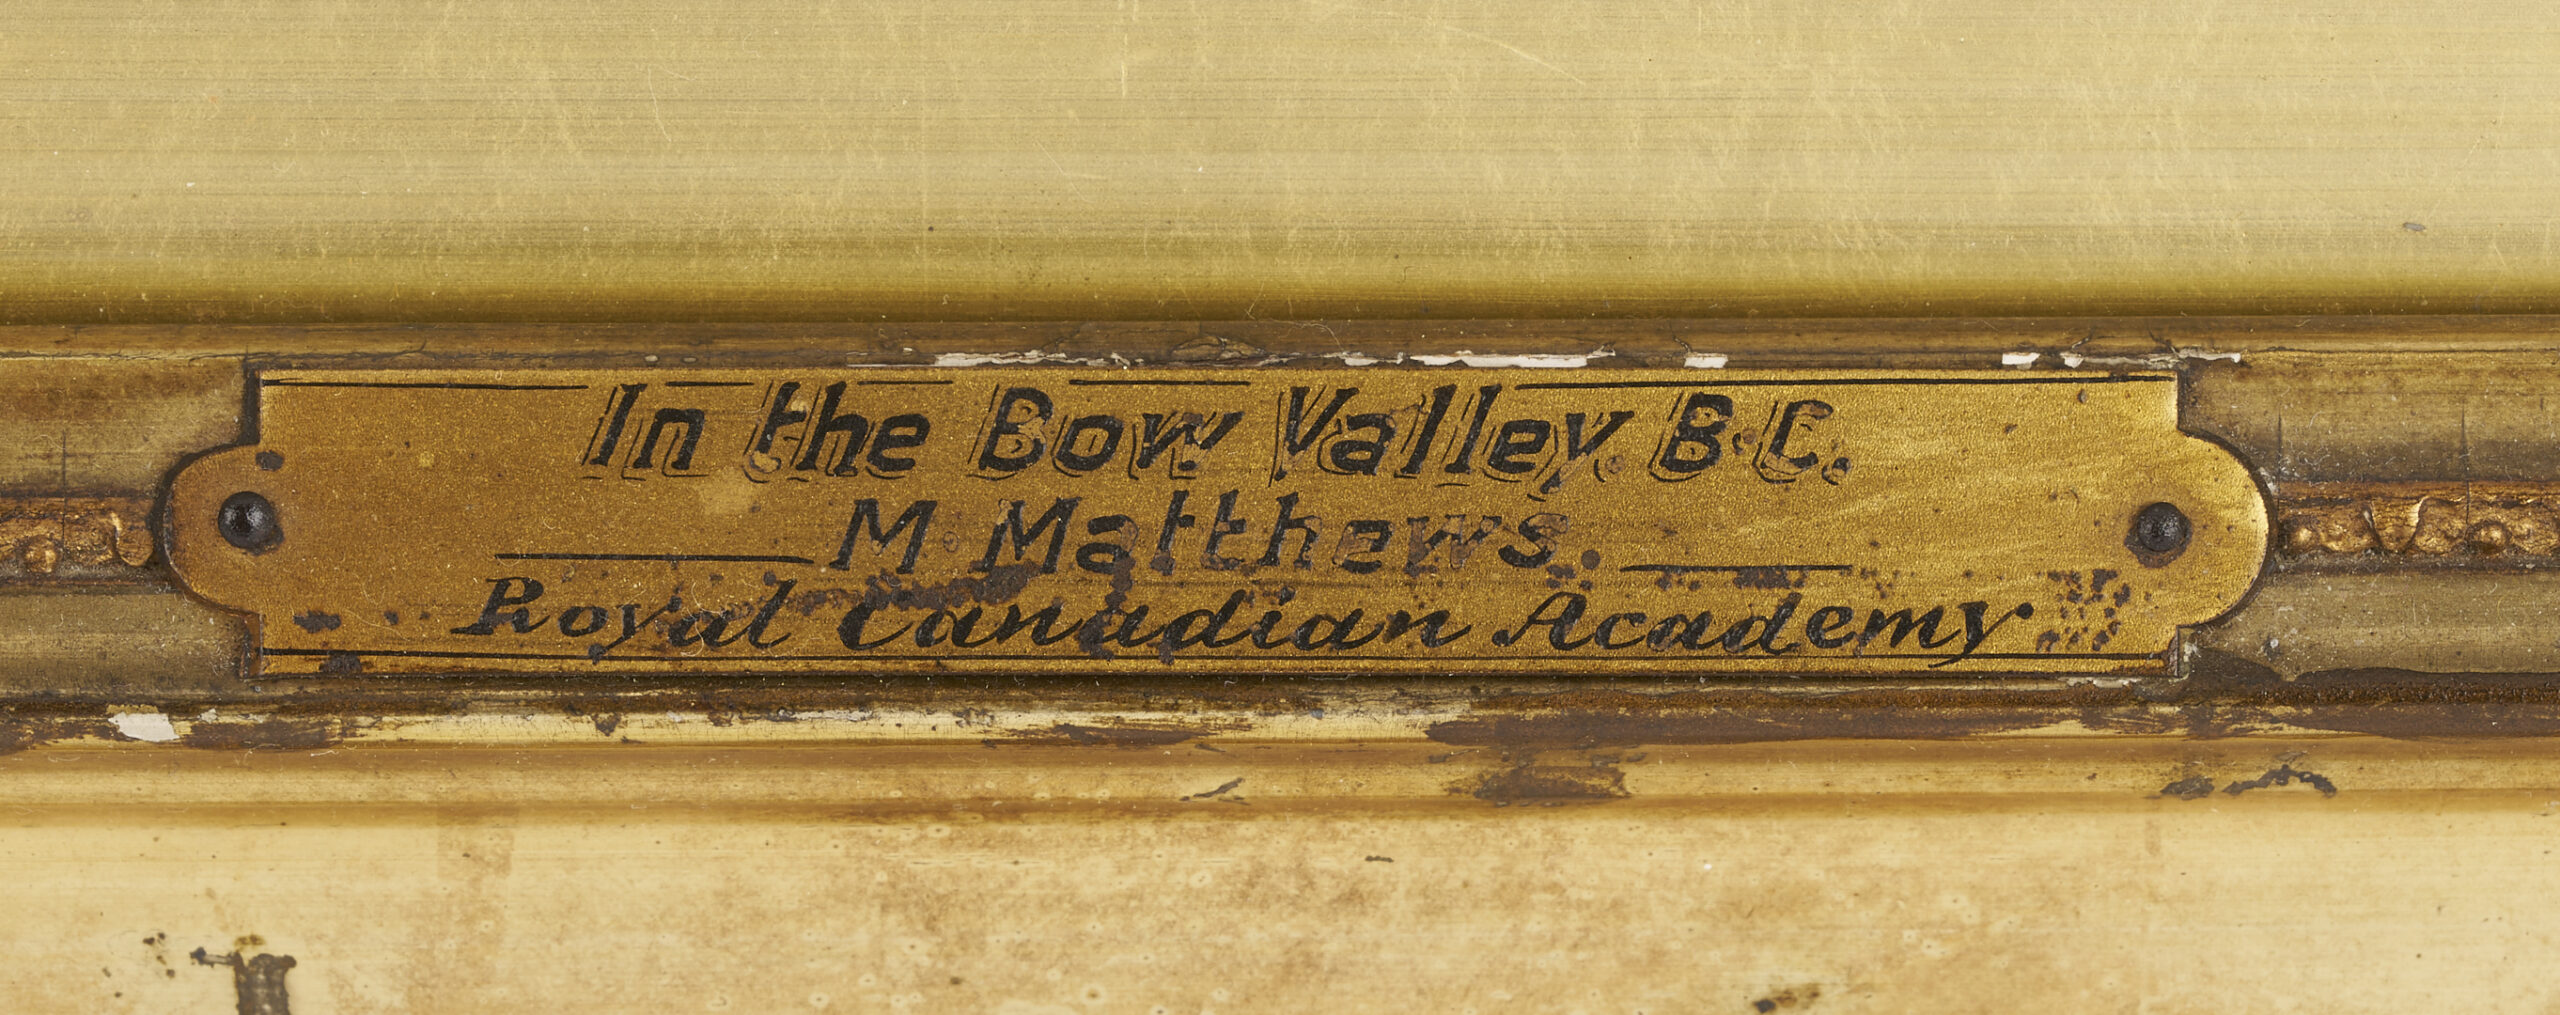 In the Bow Valley. B.C.
M. Matthews.
Royal Canadian Academy